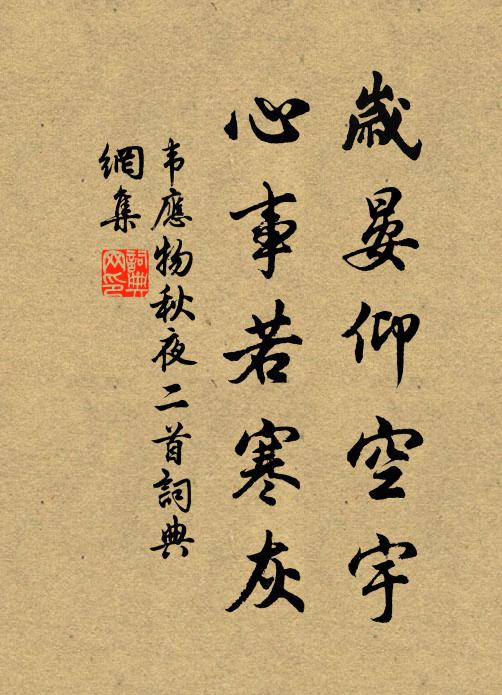 歲晏仰空宇
心事若寒灰
韦應物秋夜二首詞典
網集
詞典網印